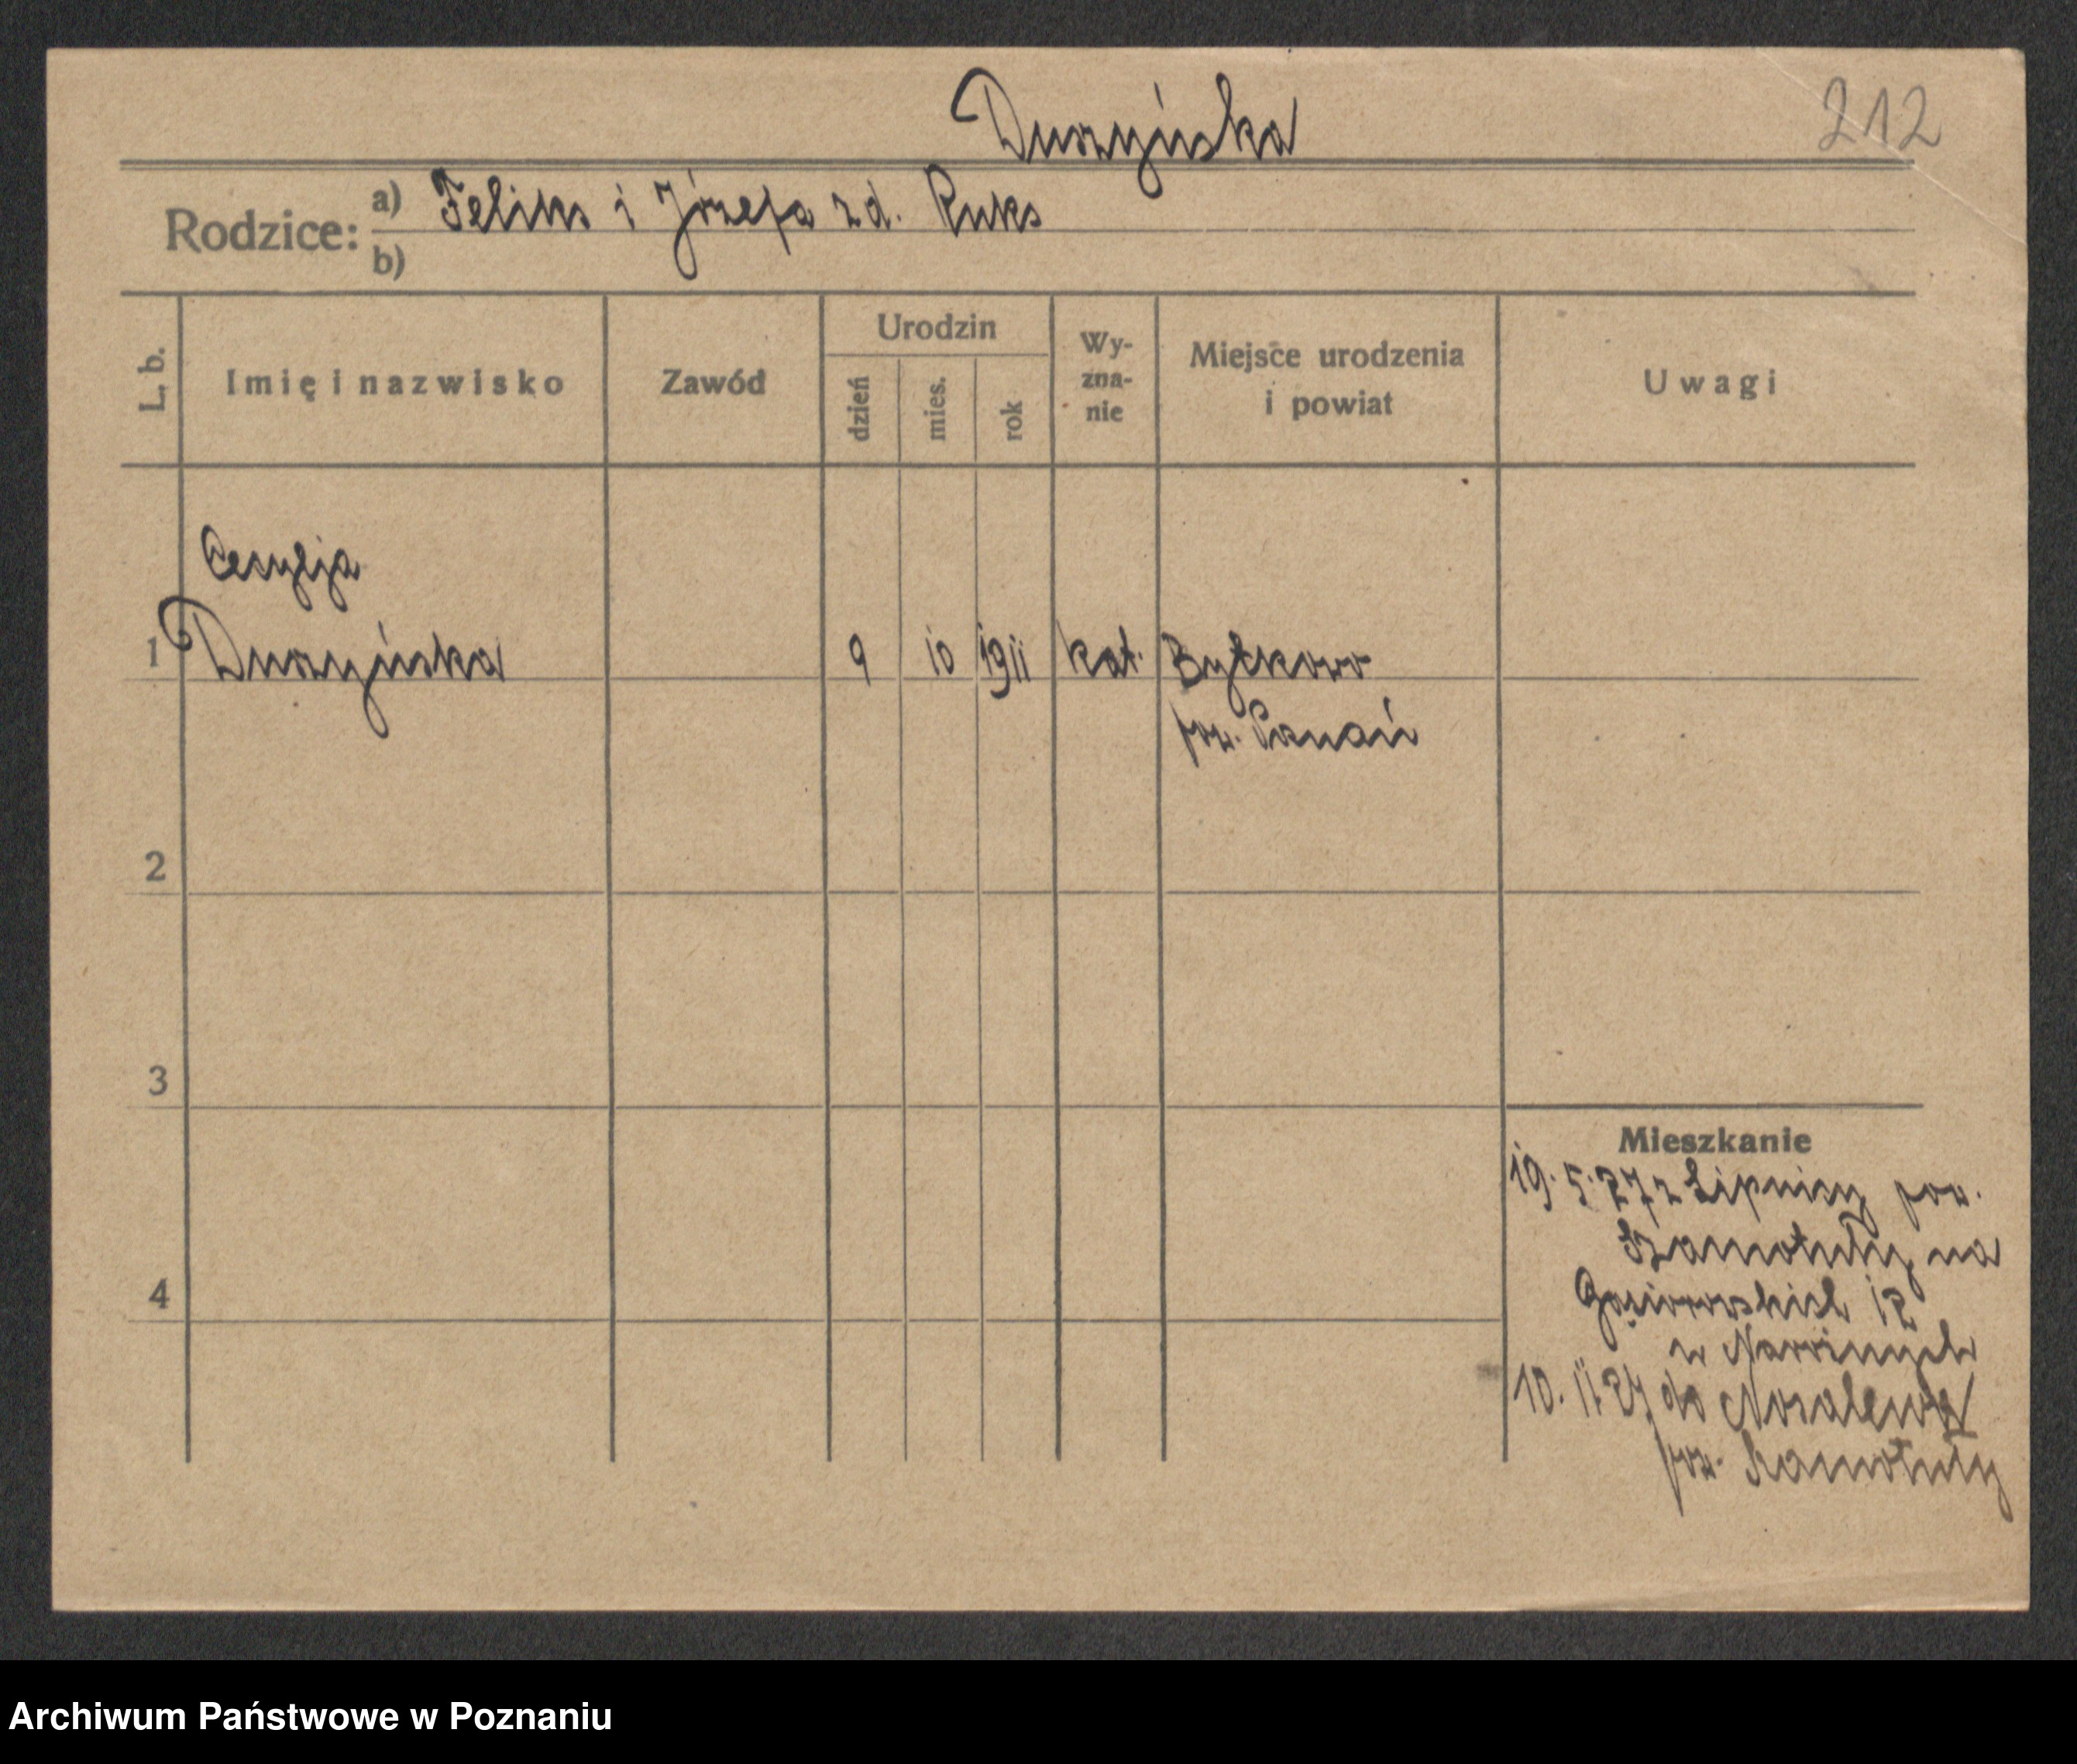 Duszyńska
212
Rodzice: a) Feliks i Józefa z d. Ruks
b)
L. b. Imię i nazwisko Zawód Urodzin dzień mies. rok Wy-zna-nie Miejsce urodzenia i powiat Uwagi
Cecylja
1 Duszyńska 9 10 1911 kat. Bytkowo
pow. Poznań
2
3
Mieszkanie
19. 5. 27 z Lipnicy pow.
Szamotuły na
4 Gąsiorowskich 12
u
10. 11. 27 do
pow. Szamotuły
Archiwum Państwowe w Poznaniu